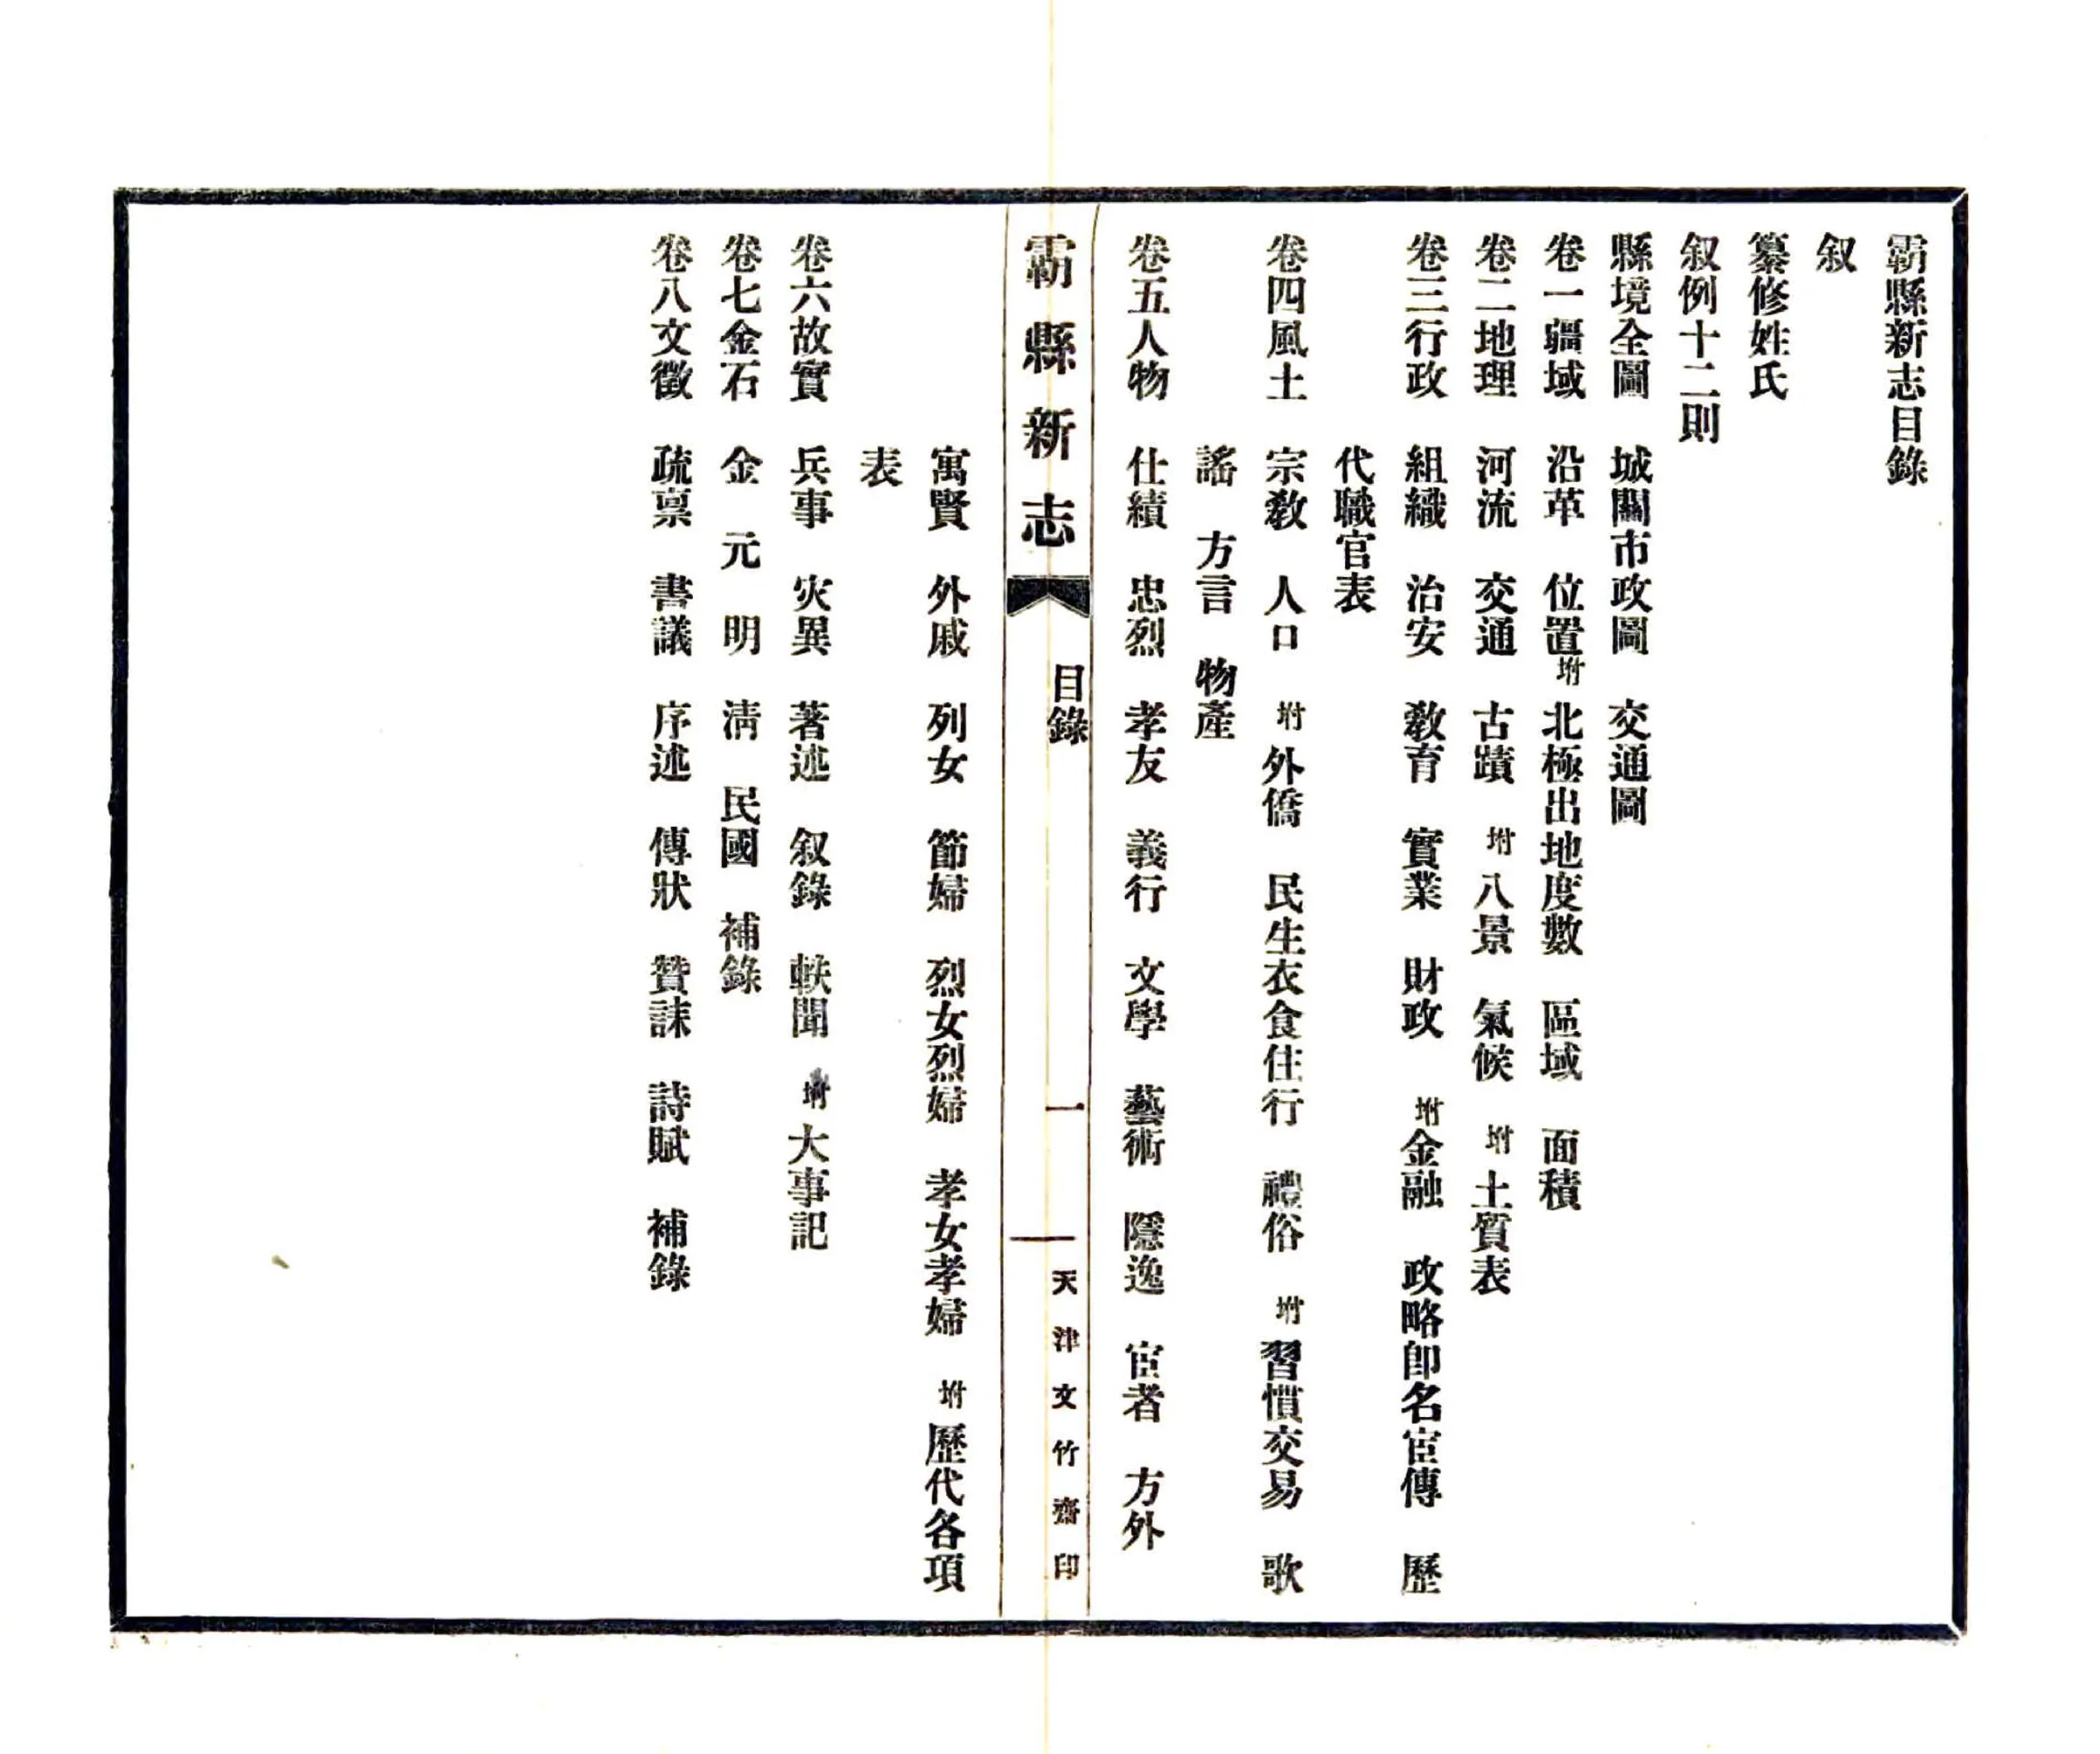 霸縣新志目錄
叙
纂修姓氏
叙例十二則
縣境全圖　城關市政圖　交通圖
卷一疆域　沿革　位置坿北極出地度數　區域　面積
卷二地理　河流　交通　古蹟　坿八景　氣候　坿土質表
卷三行政　組織　治安　教育　實業　財政　坿金融　政略卽名宦傳　歷
代職官表
卷四風土　宗教　人口　坿外僑　民生衣食住行　禮俗　坿習慣交易　歌
謠　方言　物產
卷五人物　仕績　忠烈　孝友　義行　文學　藝術　隱逸　宦者　方外
霸縣新志　目錄　一　天津文竹齋印
寓賢　外戚　列女　節婦　烈女烈婦　孝女孝婦　坿歷代各項
表
卷六故實　兵事　灾異　著述　叙錄　軼聞　坿大事記
卷七金石　金　元　明　淸　民國　補錄
卷八文徵　疏稟　書議　序述　傳狀　贊誄　詩賦　補錄